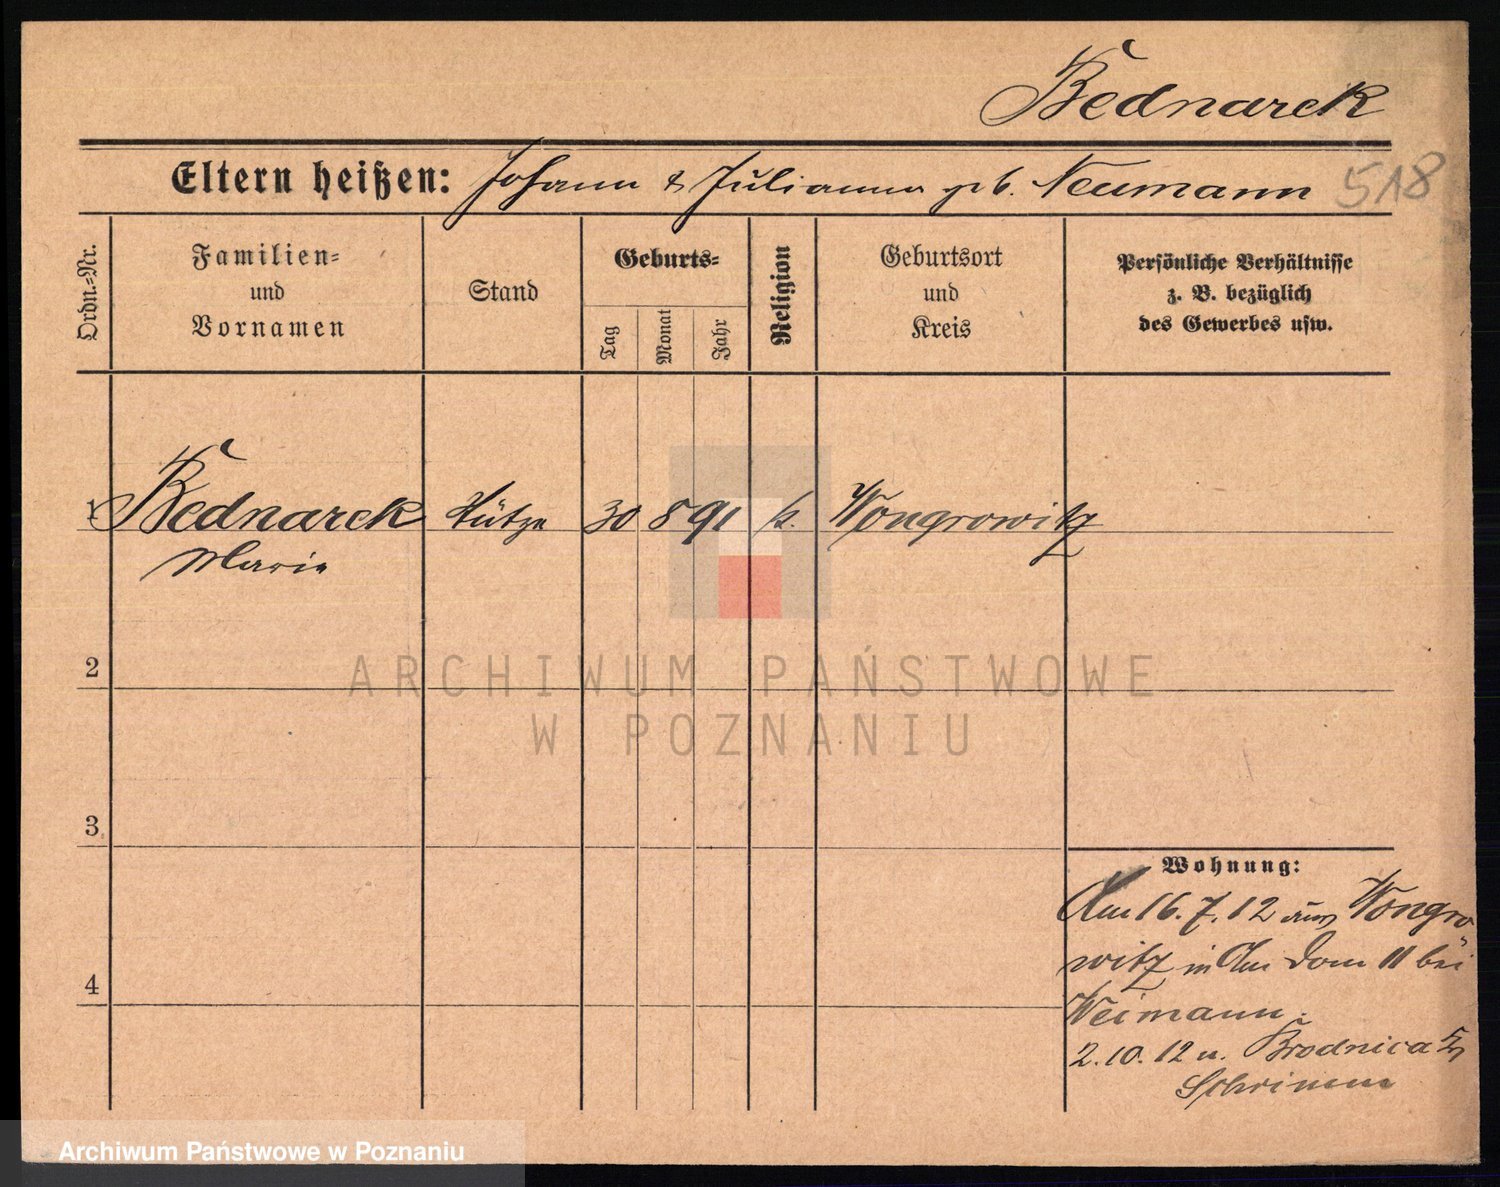 Bednarek
Eltern heißen: Johann & Julianna geb. Neumann
518
Ordn.-Nr.
Familien-
und
Vornamen
Stand
Geburts-
Tag
Monat
Jahr
Religion
Geburtsort
und
Kreis
Persönliche Verhältnisse
z. B. bezüglich
des Gewerbes usw.
1 Bednarek Stütze 30 8 91 k. Wongrowitz
Marie
2
ARCHIWUM PAŃSTWOWE
W POZNANIU
3
4
Wohnung:
Am 16.7.12 aus Wongro
witz in Am Dom 11 bei
Weimann.
2.10.12 n. Brodnica
Schrimm
Archiwum Państwowe w Poznaniu